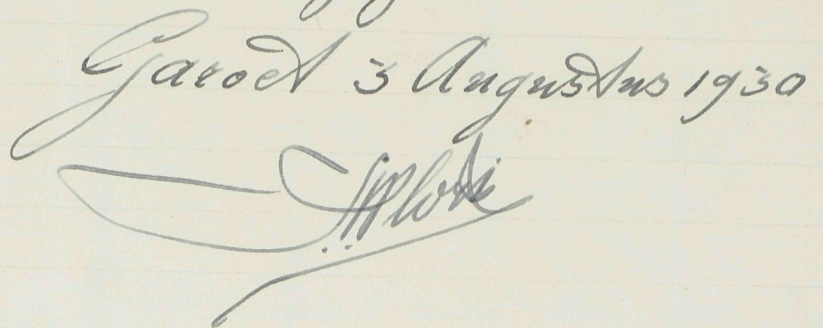 Garoet 3 Augustus 1930